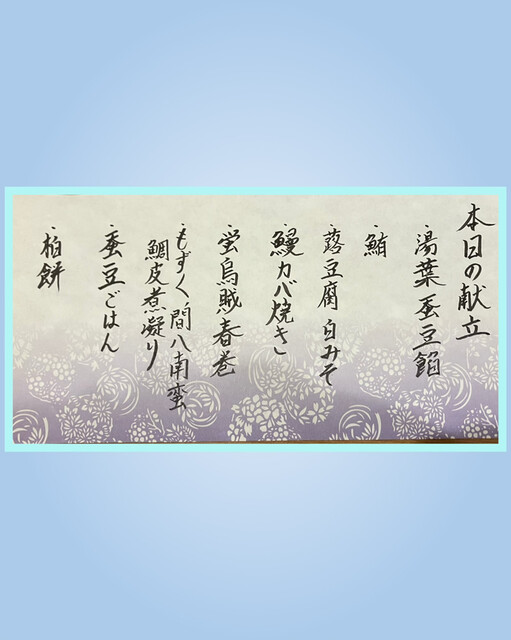 本日の献立
・湯葉 蚕豆餡
・鮪
・蕗豆腐 白みそ
・鰻カバ焼き
・蛍烏賊春巻
・もずく、間八南蛮
鯛皮煮凝り
・蚕豆ごはん
・柏餅